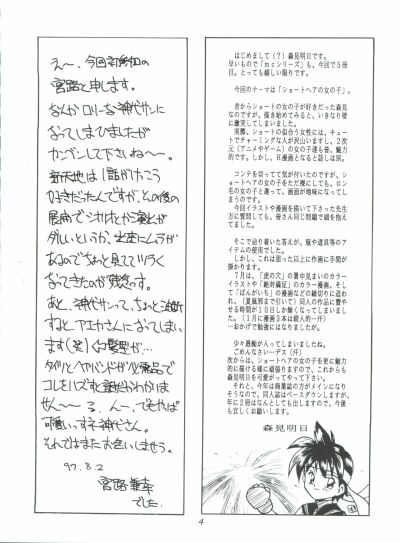 はじめまして（？）森見明日です。
早いもので「ｍｃシリーズ」も、今回で５冊
目。とっても嬉しい限りです。
今回のテーマは「ショートヘアの女の子」。
昔からショートの女の子が好きだった森見
なのですが、描き始めてみると、いきなり壁
に激突してしまいました。
実際、ショートの似合う女性には、キュー
トでチャーミングな人が沢山いますし、２次
元（アニメやゲーム）の女の子達も皆、魅力
的です。しかし、Ｈ漫画となると話しは別。
コンテを切ってて気が付いたのですが、シ
ョートヘアの女の子をただ裸にしても、ロン
毛の女の子と違って、画面が地味になってし
まうのです。
今回イラストや漫画を描いて下さった先生
方に質問しても、皆さん同じ問題で頭を抱え
てました。
そこで辿り着いた答えが、服や道具等のア
イテムの使用でした。
しかし、これは思った以上に作画に手間が
掛かります。
７月は、「虎の穴」の暑中見まいのカラー
イラストや「絶対満足」のカラー漫画、そし
て「ぱんがいち」の漫画などの締切りに追わ
れ、（夏風邪まで引いて）同人の作品に費や
せる時間が１０日しか無くなってしまいまし
た。（１月に漫画３本は殺人的…汗）
…おかげで勉強にはなりましたが。
少々愚痴が入ってしまいましたね。
ごめんなさい…デス（汗）
次からは、ショートヘアの女の子を更に魅力
的に描ける様に頑張りますので、これからも
森見明日を可愛がってやって下さい。
それと、今年は商業誌の方がメインになり
そうなので、同人誌はペースダウンしますが、
年に２冊はなんとしても出しますので、今後
も宜しくお願いします。
森見明日
え〜、今回初参加の
宮路と申します。
なんかロリーな神代サンに
なってしまひましたが
カンベンして下さいね〜。
好きだったんですが、その後の
あるのでちょっと見ててツラく
なってきたのが残念す。
せん〜。る、んー、でもやっぱ
それではまたお会いしませう。
97.8.2
でした
4